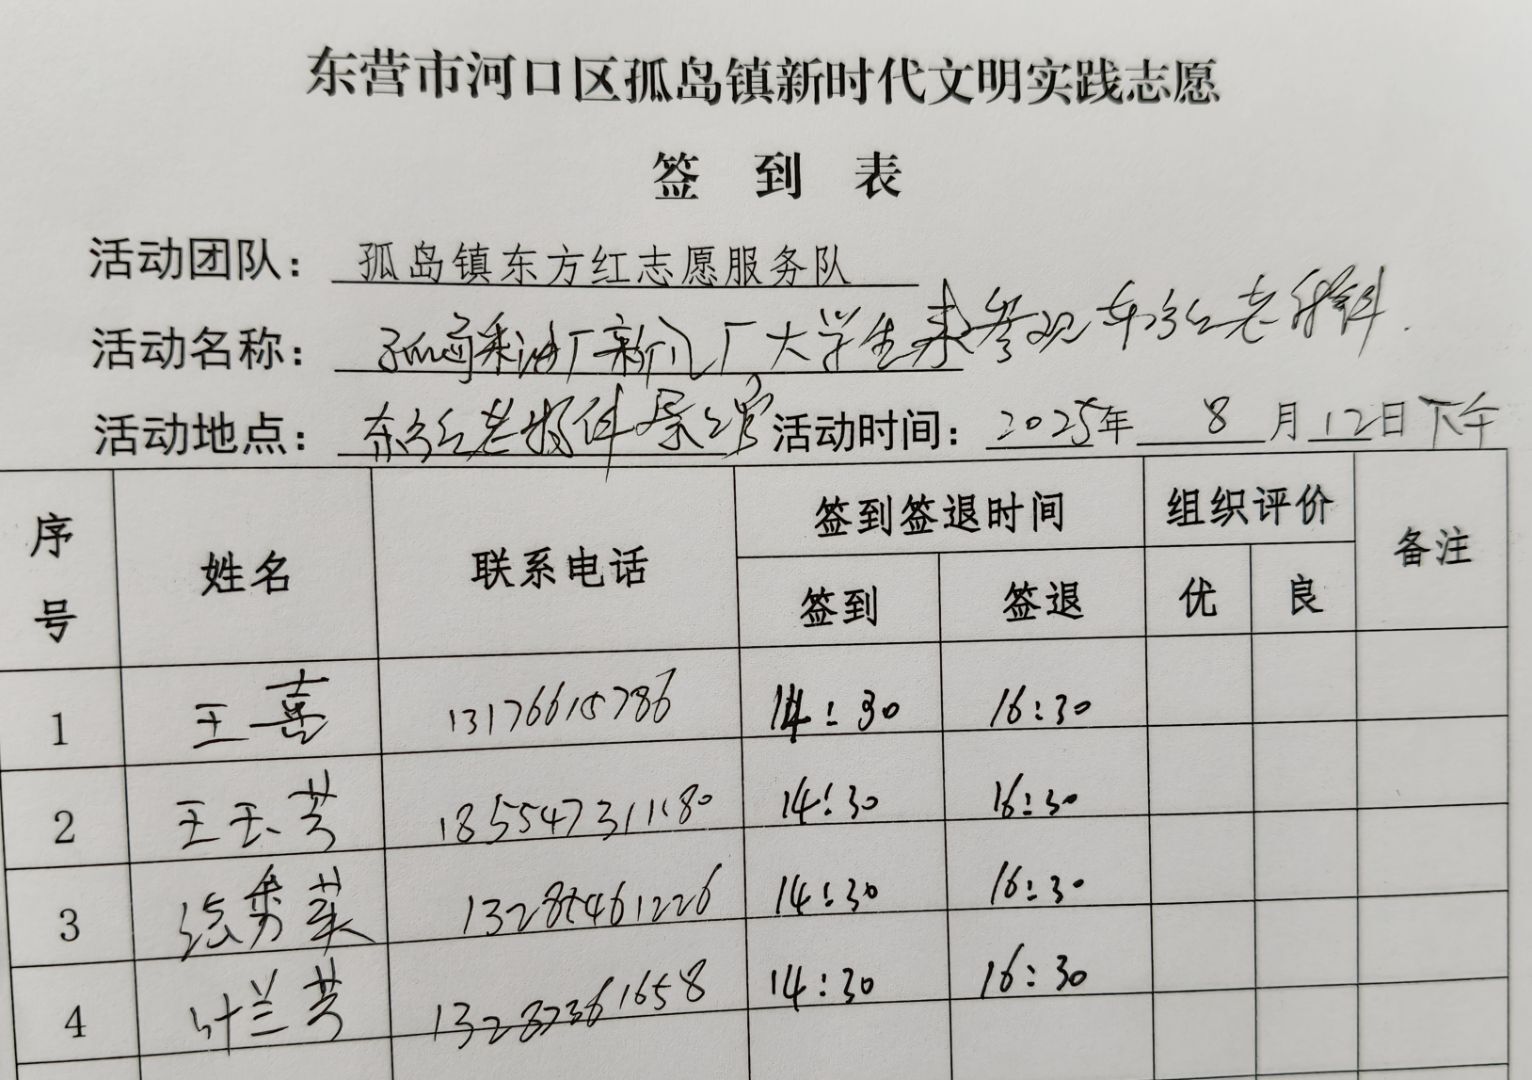 东营市河口区孤岛镇新时代文明实践志愿
签 到 表
活动团队：孤岛镇东方红志愿服务队
活动名称：孤岛采油厂新入厂大学生来参观东方红老物件.
活动地点：东方红老物件展馆 活动时间：2025年 8 月 12日 下午
序号 姓名 联系电话 签到签退时间 组织评价 备注
签到 签退 优 良
1 王喜 13176615786 14:30 16:30
2 王玉芳 18554731180 14:30 16:30
3 秀英 14:30 16:30
4 叶兰芳 14:30 16:30